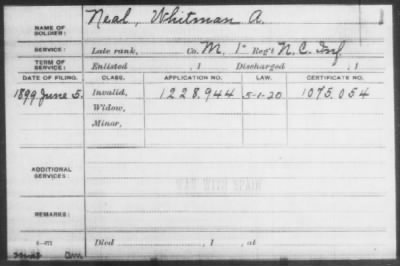 NAME OF SOLDIER: Neal, Whitman A.
SERVICE: Late rank, Co. M, 1 Reg't N.C. Inf
TERM OF SERVICE: Enlisted , 1 Discharged , 1
DATE OF FILING. CLASS. APPLICATION NO. LAW. CERTIFICATE NO.
1899 June 5. Invalid, 1228.944 5-1-20 1075.054
Widow,
Minor,
ADDITIONAL SERVICES:
WAR WITH SPAIN
REMARKS:
Died , 1 , at